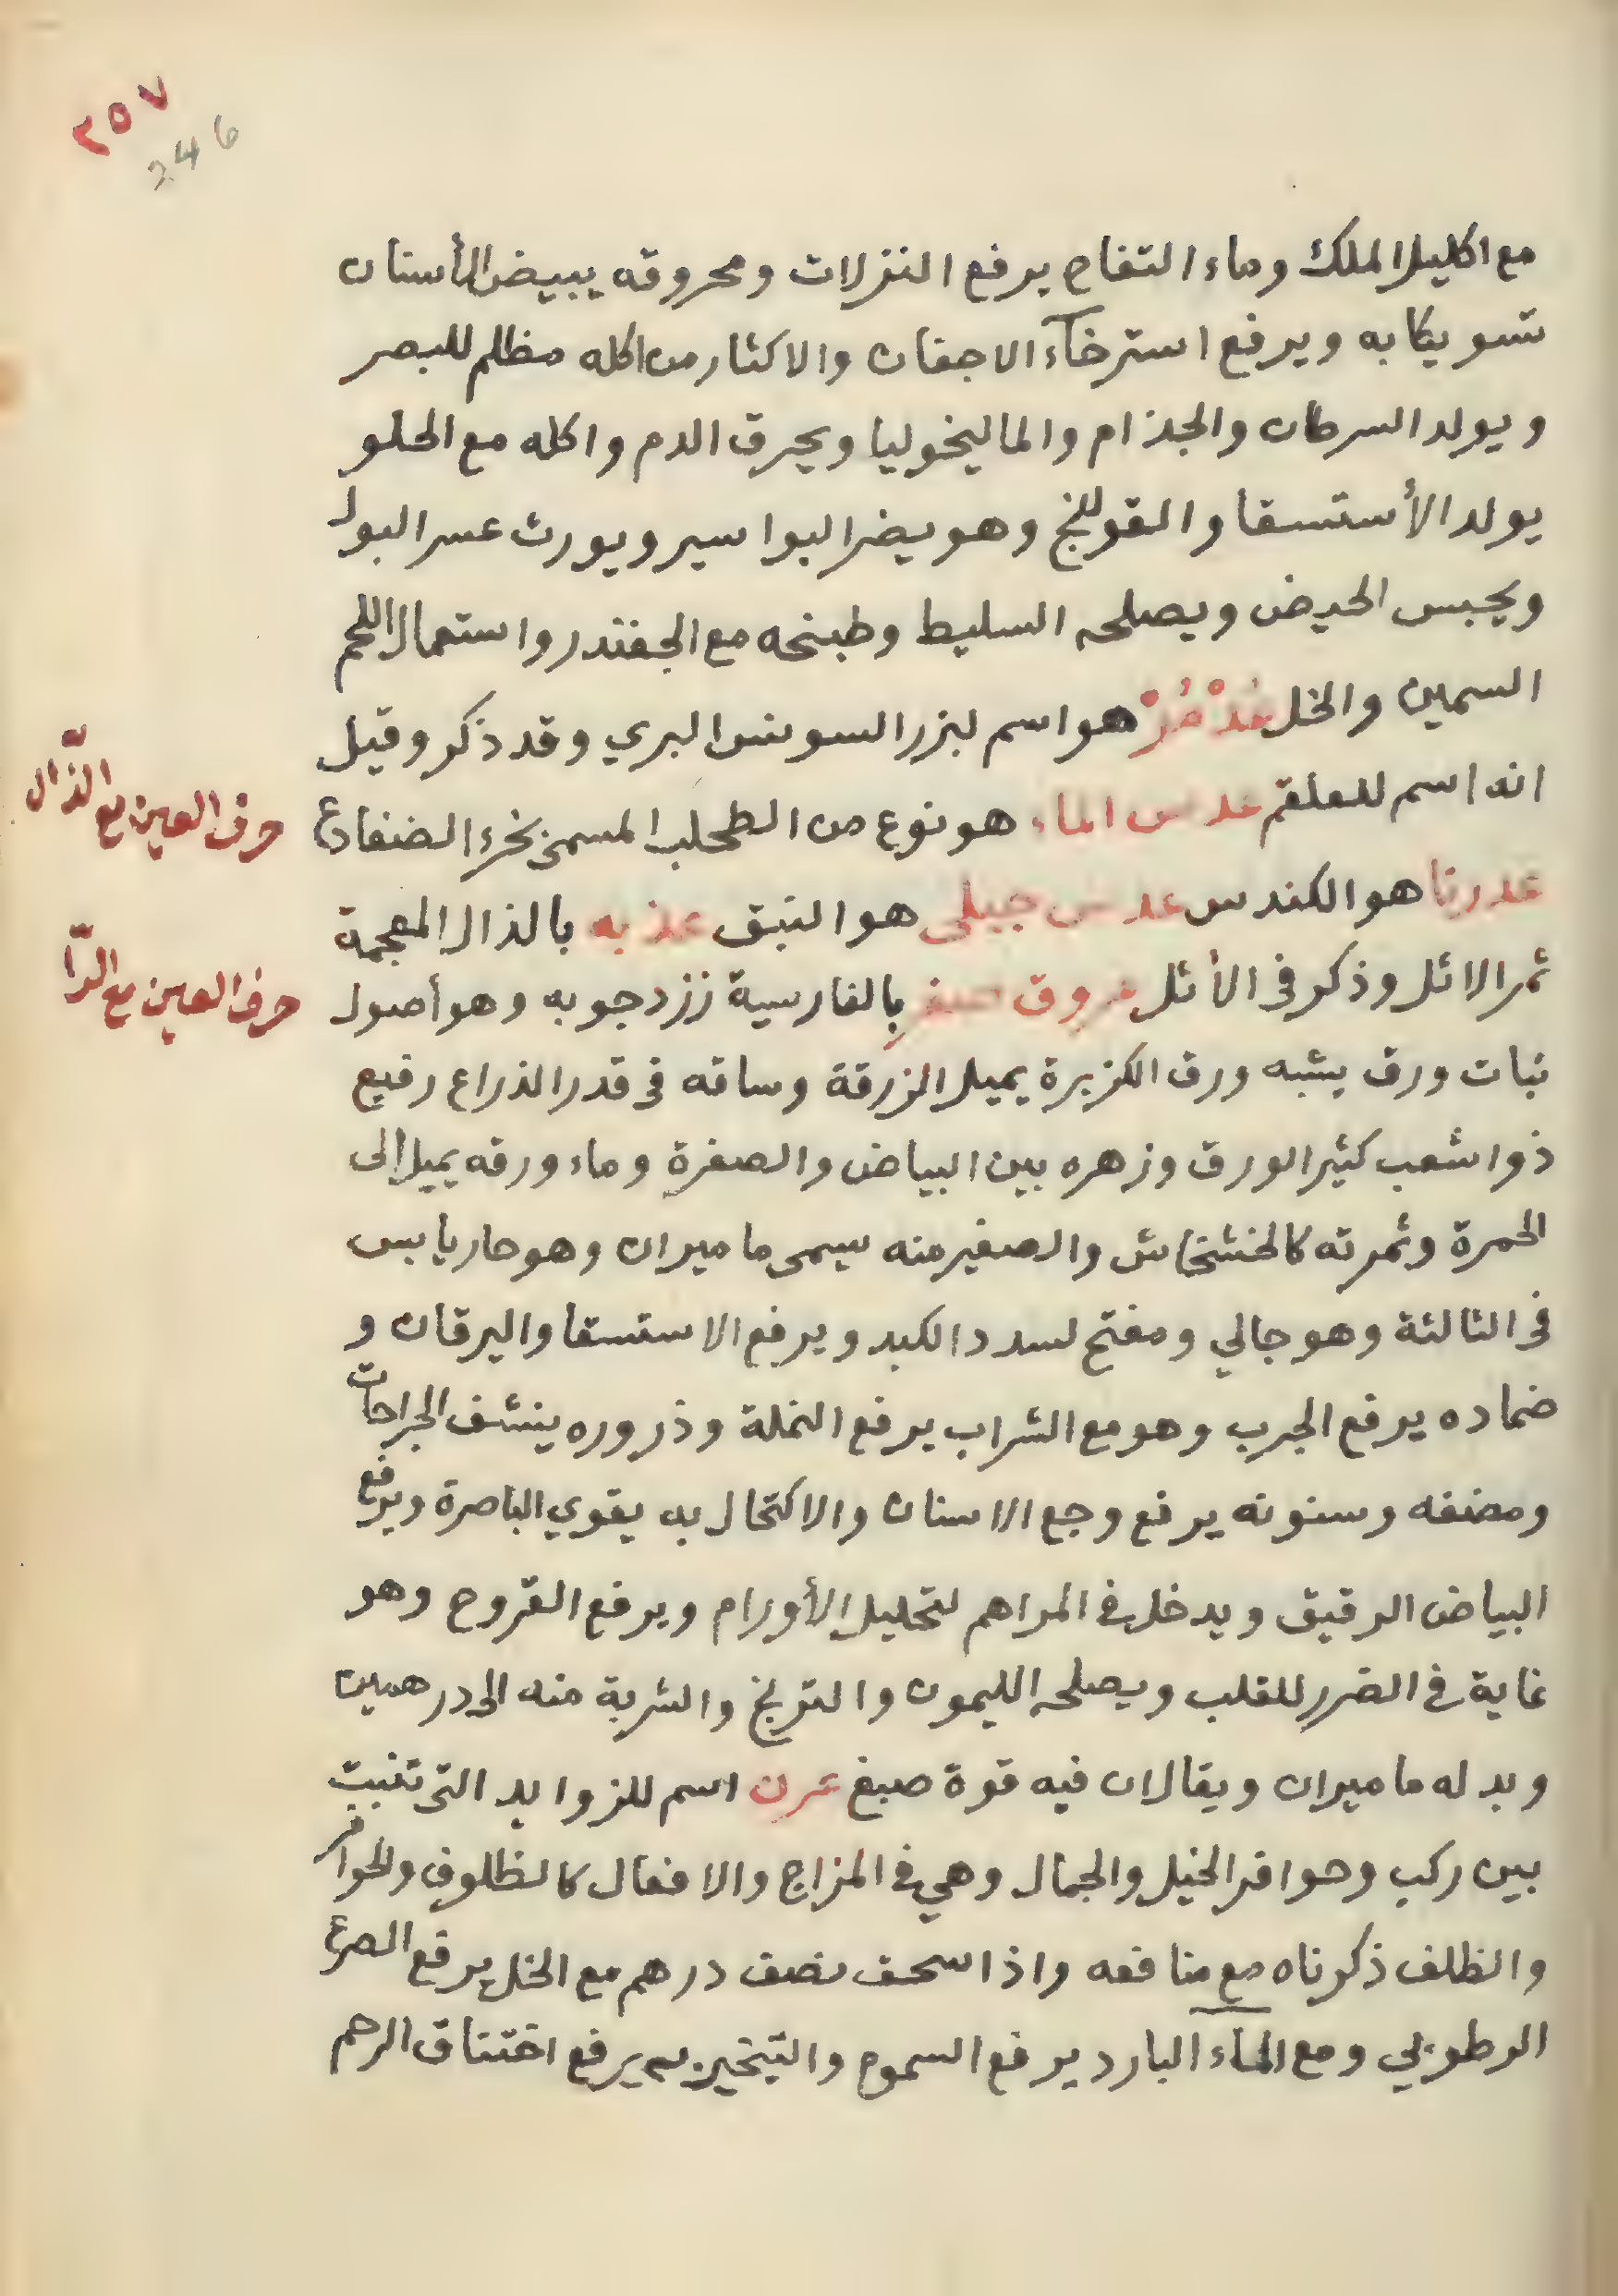 ٢٥٧
246
مع اكليل الملك وماء التفاح يرفع النزلات ومحروقه يبيض الأسنان
تسويكا به ويرفع استرخآء الاجفان والاكثار من اكله مظلم للبصر
ويولد السرطان والجذام والماليخوليا ويحرق الدم واكله مع الحلو
يولد الأستسقا والقولنج وهو يضر البواسير ويورث عسر البول
ويحبس الحيض ويصلحه السليط وطبخه مع الجغندر واستعمال اللحم
السمين والخل هو اسم لبزر السوس البري وقد ذكر وقيل
انه اسم للعلقم عدس الماء هو نوع من الطحلب المسمى بخرء الضفادع
حرف العين مع الذّال
عدرنا هو الكندس عدس جبلى هو النبق عذبه بالذال المعجمة
ثمر الاثل وذكر في الأثل عروق صفر بالفارسية زردجوبه وهو أصول
حرف العين مع الرّا
نبات ورق يشبه ورق الكزبرة يميل الزرقة وساقه في قدر الذراع رفيع
ذوا شعب كثير الورق وزهره بين البياض والصفرة وماء ورقه يميل الى
الحمرة وثمرته كالخشخاش والصغير منه يسمى ماميران وهو حار يابس
في الثالثة وهو جالي ومفتح لسدد الكبد ويرفع الاستسقا واليرقان و
ضماده يرفع الجرب وهو مع الشراب يرفع النملة وذروره ينشف الجراحات
ومضغه وسنونه يرفع وجع الاسنان والاكتحال به يقوي الباصرة ويرفع
البياض الرقيق ويدخل في المراهم لتحليل الأورام ويرفع القروح وهو
غاية في الضرر للقلب ويصلحه الليمون والترنج والشربة منه الى درهمين
وبدله ماميران ويقال ان فيه قوة صبغ عرن اسم للزوايد التى تنبت
بين ركب وحوافر الخيل والجمال وهي في المزاج والافعال كالظلوف والحوافر
والظلف ذكرناه مع منافعه واذا سحق نصف درهم مع الخل يرفع الصرع
الرطوبي ومع المآء البارد يرفع السموم والتبخير به يرفع اختناق الرحم